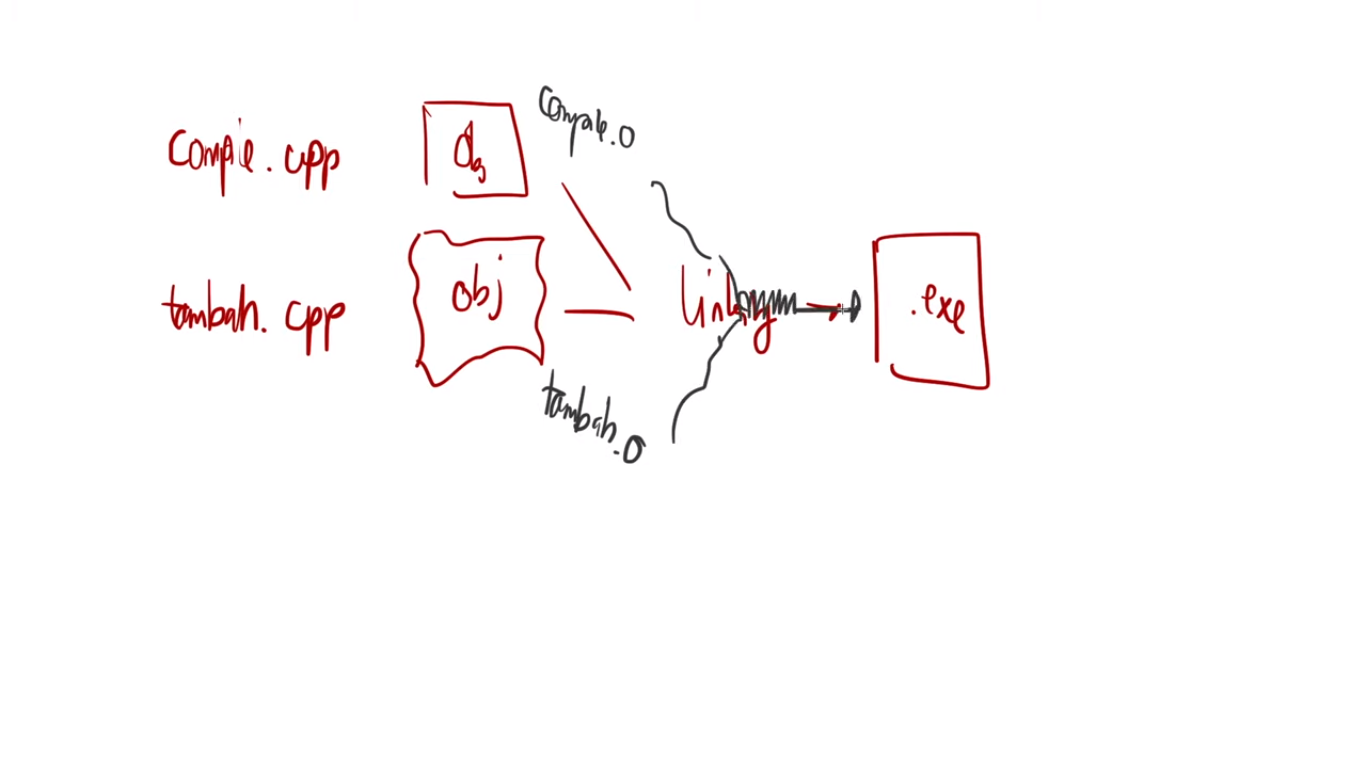 compile.cpp
obj
compile.o
tambah.cpp
obj
linking
.exe
tambah.o